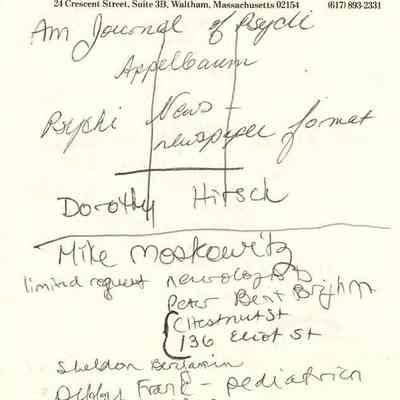 24 Crescent Street, Suite 3B, Waltham, Massachusetts 02154 (617) 893-2331
Am Journal of Psychi
Appelbaum
Psychi News -
newspaper format
Dorothy Hirsch
Mike Moskowitz
limind request neurologists
Peter Bent Brighm
Chestnut St
136 Eliot St
Sheldon Benjamin
Debby Frank - pediatrician